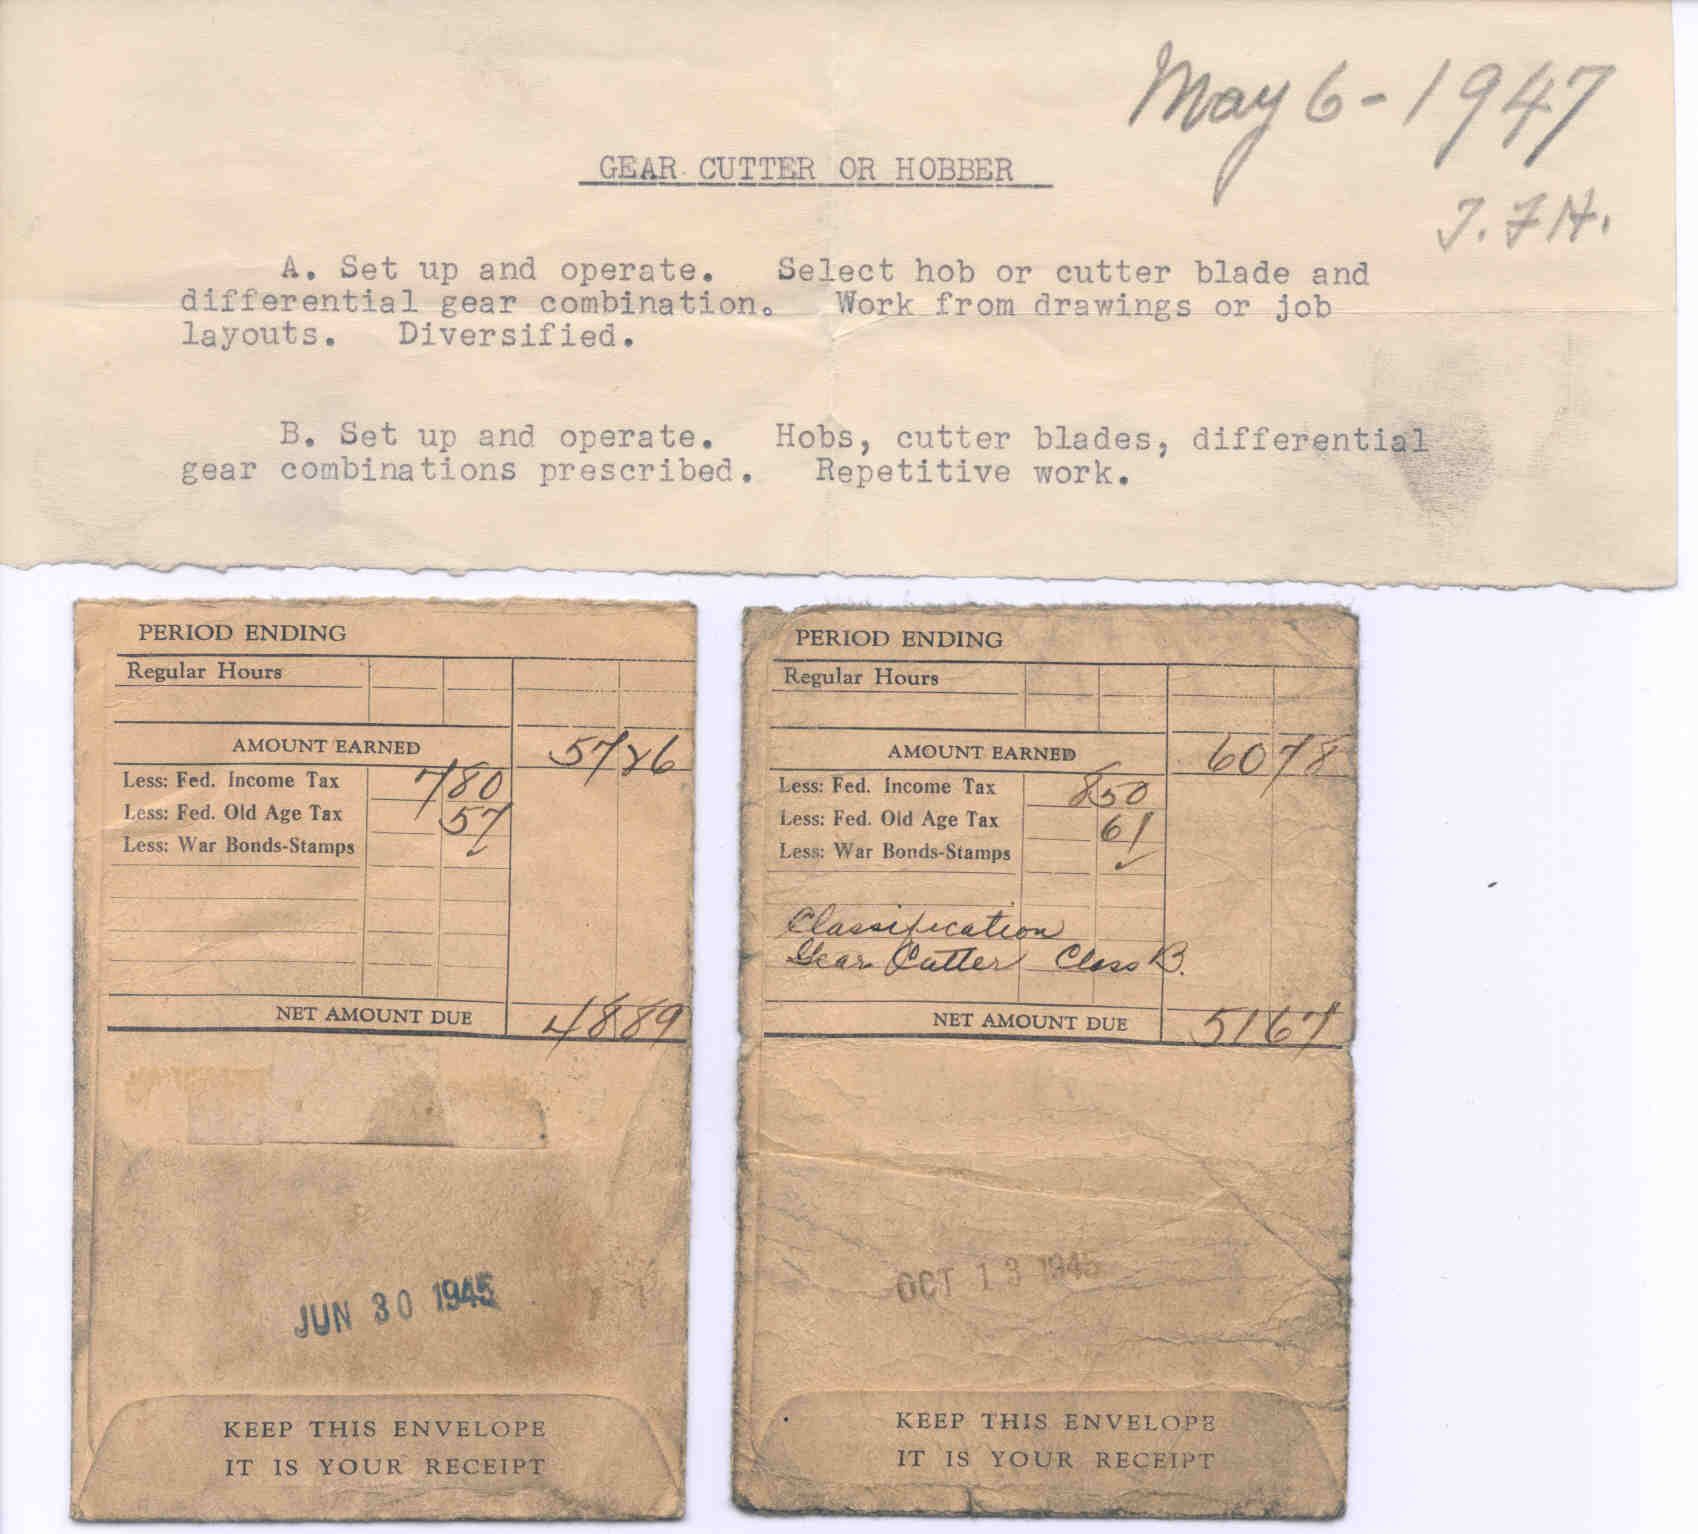 May 6-1947
GEAR CUTTER OR HOBBER
J. F H.
A. Set up and operate. Select hob or cutter blade and
differential gear combination. Work from drawings or job
layouts. Diversified.
B. Set up and operate. Hobs, cutter blades, differential
gear combinations prescribed. Repetitive work.
PERIOD ENDING
Regular Hours
AMOUNT EARNED 57 26
Less: Fed. Income Tax 7 80
Less: Fed. Old Age Tax 57
Less: War Bonds-Stamps ✓
NET AMOUNT DUE 48 89
JUN 30 1945
KEEP THIS ENVELOPE
IT IS YOUR RECEIPT
PERIOD ENDING
Regular Hours
AMOUNT EARNED 60 78
Less: Fed. Income Tax 8 50
Less: Fed. Old Age Tax 61
Less: War Bonds-Stamps ✓
Classification
Gear Cutter Class B.
NET AMOUNT DUE 51 67
OCT 13 1945
KEEP THIS ENVELOPE
IT IS YOUR RECEIPT